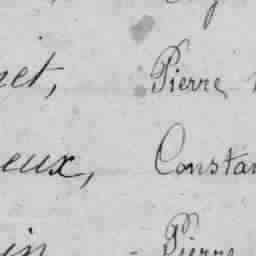 net, Pierre
eux, Constan
in - Pierre